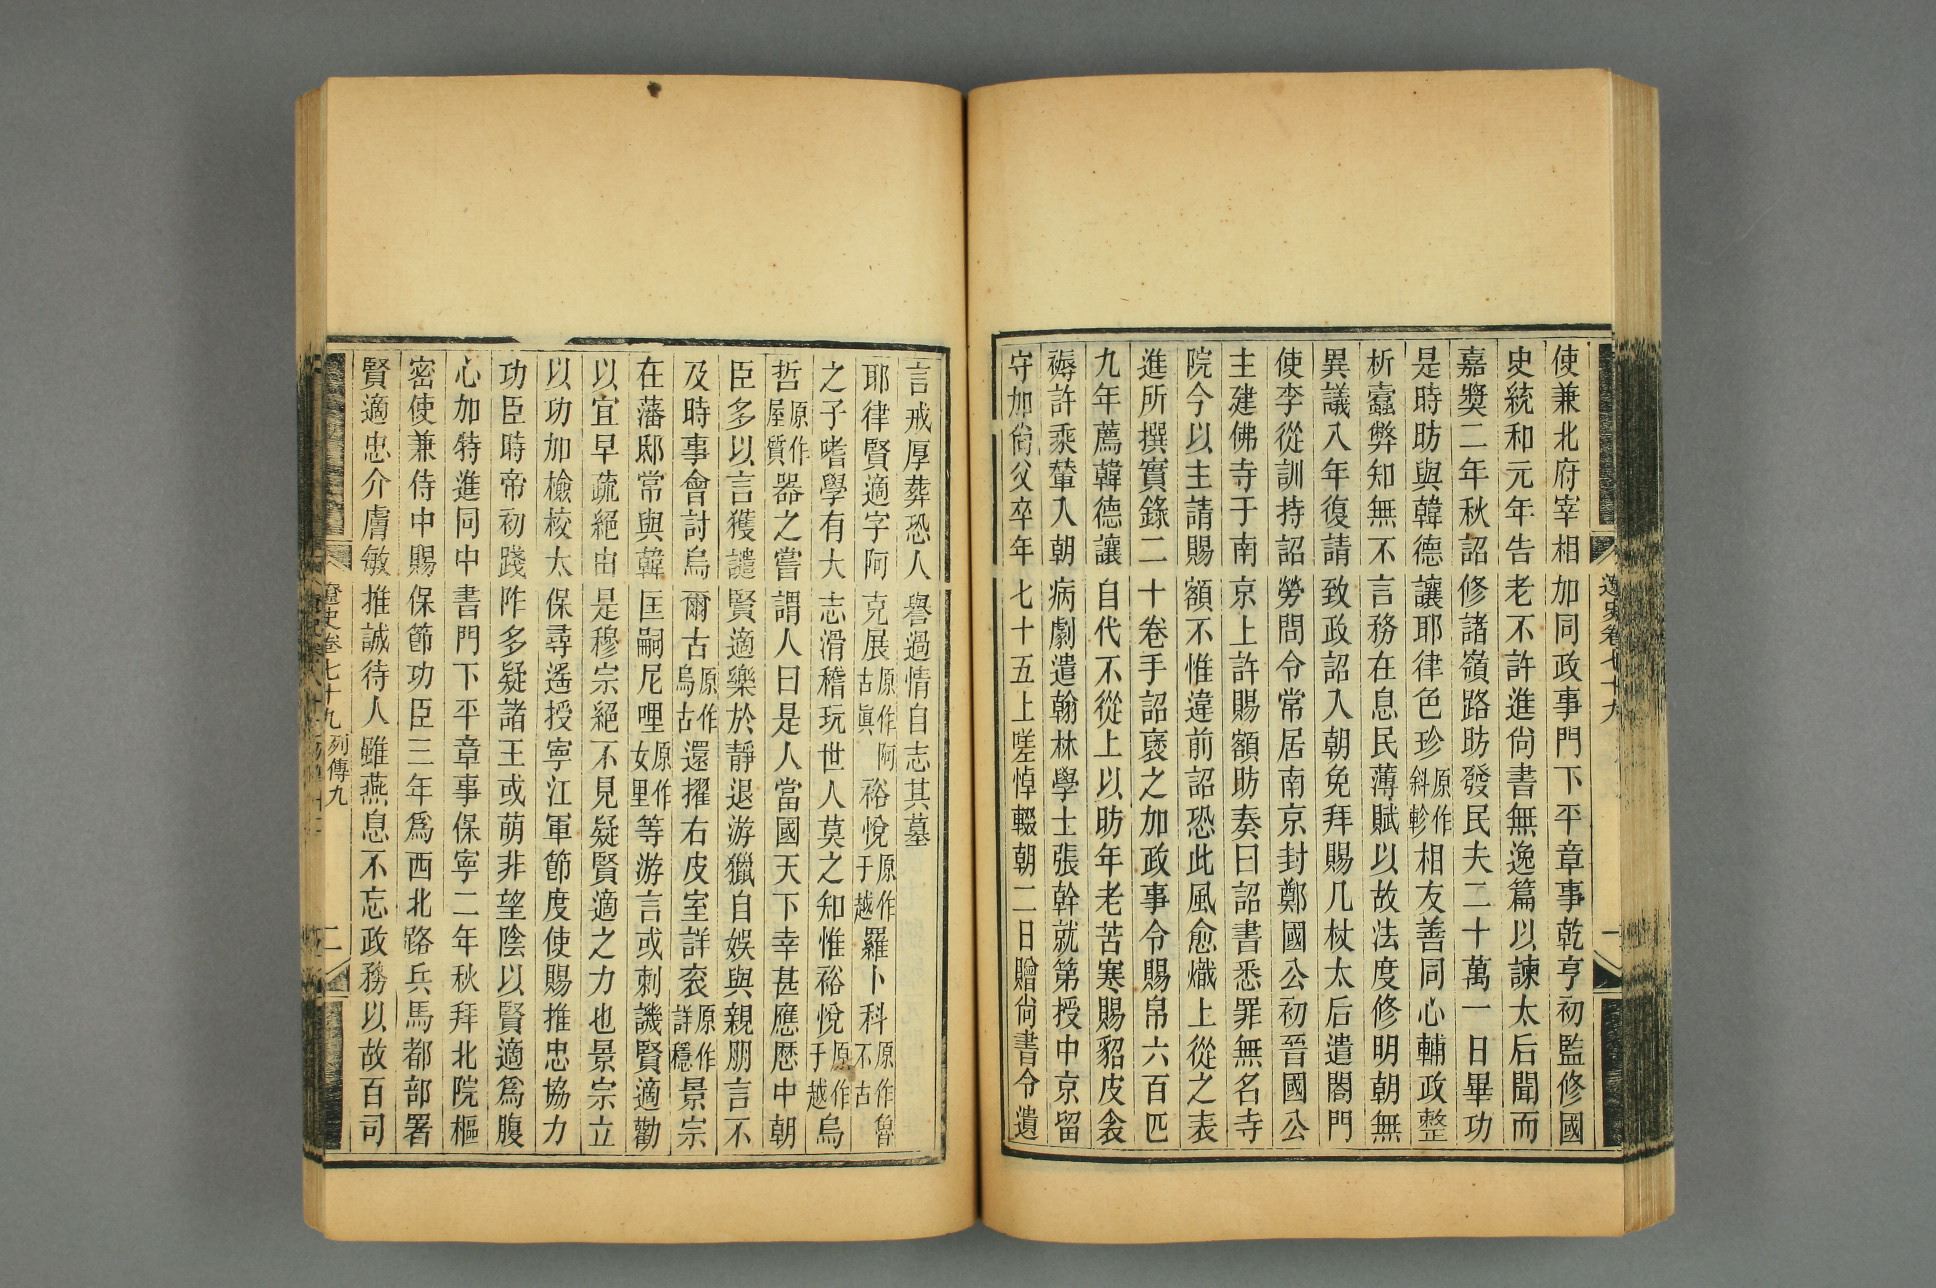 使兼北府宰相加同政事門下平章事乾亨初監修國
史統和元年告老不許進尙書無逸篇以諫太后聞而
嘉獎二年秋詔修諸嶺路昉發民夫二十萬一日畢功
是時昉與韓德讓耶律色珍原作斜軫相友善同心輔政整
析蠹弊知無不言務在息民薄賦以故法度修明朝無
異議八年復請致政詔入朝免拜賜几杖太后遣閤門
使李從訓持詔勞問令常居南京封鄭國公初晉國公
主建佛寺于南京上許賜額昉奏曰詔書悉罪無名寺
院今以主請賜額不惟違前詔恐此風愈熾上從之表
進所撰實錄二十卷手詔襃之加政事令賜帛六百匹
九年薦韓德讓自代不從上以昉年老苦寒賜貂皮衾
褥許乘輦入朝病劇遣翰林學士張幹就第授中京留
守加尙父卒年七十五上嗟悼輟朝二日贈尙書令遺
言戒厚葬恐人譽過情自志其墓
耶律賢適字阿克展原作阿古眞裕悅原作于越羅卜科原作魯不古
之子嗜學有大志滑稽玩世人莫之知惟裕悅原作于越烏
哲原作屋質器之嘗謂人曰是人當國天下幸甚應歷中朝
臣多以言獲譴賢適樂於靜退游獵自娛與親朋言不
及時事會討烏爾古原作烏古還擢右皮室詳衮原作詳穩景宗
在藩邸常與韓匡嗣尼哩原作女里等游言或刺譏賢適勸
以宜早疏絕由是穆宗絕不見疑賢適之力也景宗立
以功加檢校太保尋遙授寧江軍節度使賜推忠協力
功臣時帝初踐阼多疑諸王或萌非望陰以賢適爲腹
心加特進同中書門下平章事保寧二年秋拜北院樞
密使兼侍中賜保節功臣三年爲西北路兵馬都部署
賢適忠介膚敏推誠待人雖燕息不忘政務以故百司
遼史卷七十九列傳九
二